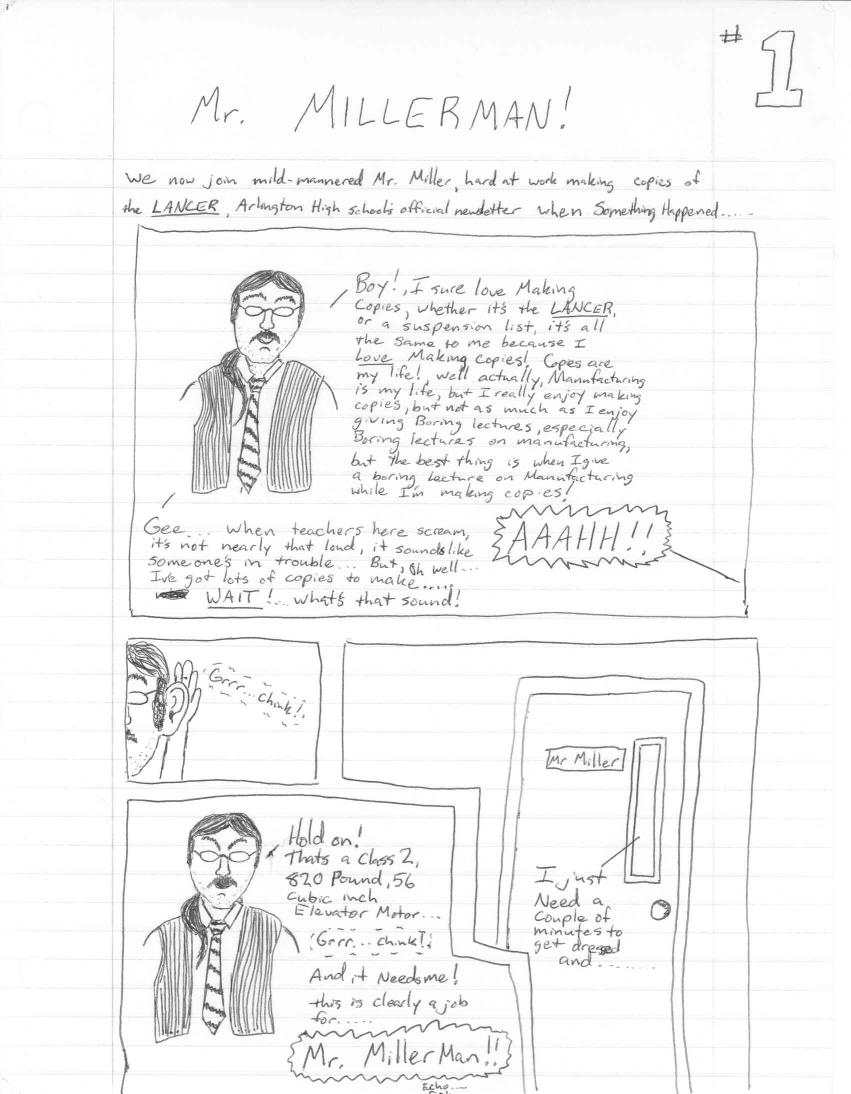 # 1
Mr. MILLERMAN!
We now join mild-mannered Mr. Miller, hard at work making copies of
the LANCER, Arlington High school's official newsletter when Something Happened.....
Boy!, I sure love Making
Copies, whether it's the LANCER,
or a suspension list, it's all
the same to me because I
Love Making copies! Copes are
my life! well actually, Manufacturing
is my life, but I really enjoy making
copies, but not as much as I enjoy
giving Boring lectures, especially
Boring lectures on manufacturing,
but the best thing is when I give
a boring lecture on Manufacturing
while I'm making copies!
AAAHH!!
Gee.... when teachers here scream,
it's not nearly that loud, it sounds like
someone's in trouble... But, Oh well...
I've got lots of copies to make.....
WAIT!... what's that sound!
Grrr...chink!
Hold on!
Thats a Class 2,
820 Pound, 56
cubic inch
Elevator Motor...
Grrr...chink!
And it Needs me!
this is clearly a job
for.....
Mr. MillerMan!!
Echo....
Mr Miller
I just
Need a
couple of
minutes to
get dressed
and ........